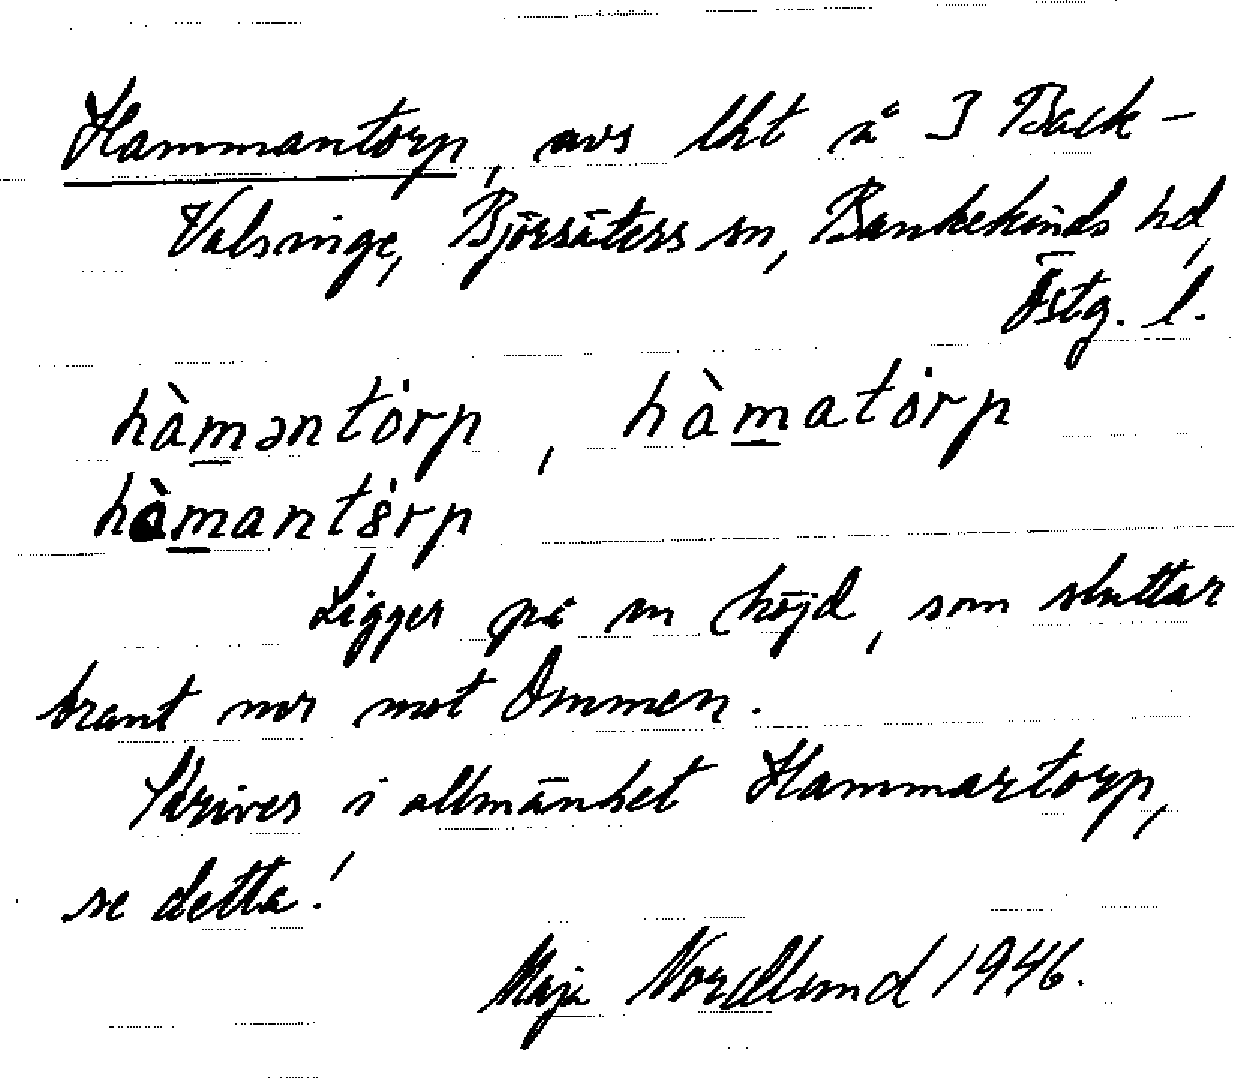 Hammantorp, avs lht å J Back-
Valsnige, Björsäters sn, Bankekinds hd,
Östg. l.
hàmantȯrp, hàmatȯrp
hàmantȯrp
Ligger på en höjd, som sluttar
brant ner mot Ommen.
Skrives i allmänhet Hammartorp,
se detta!
Maja Nordlund 1946.